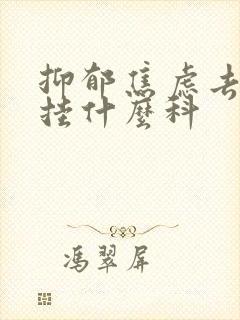 抑郁焦虑去
挂什麼科
冯翠屏